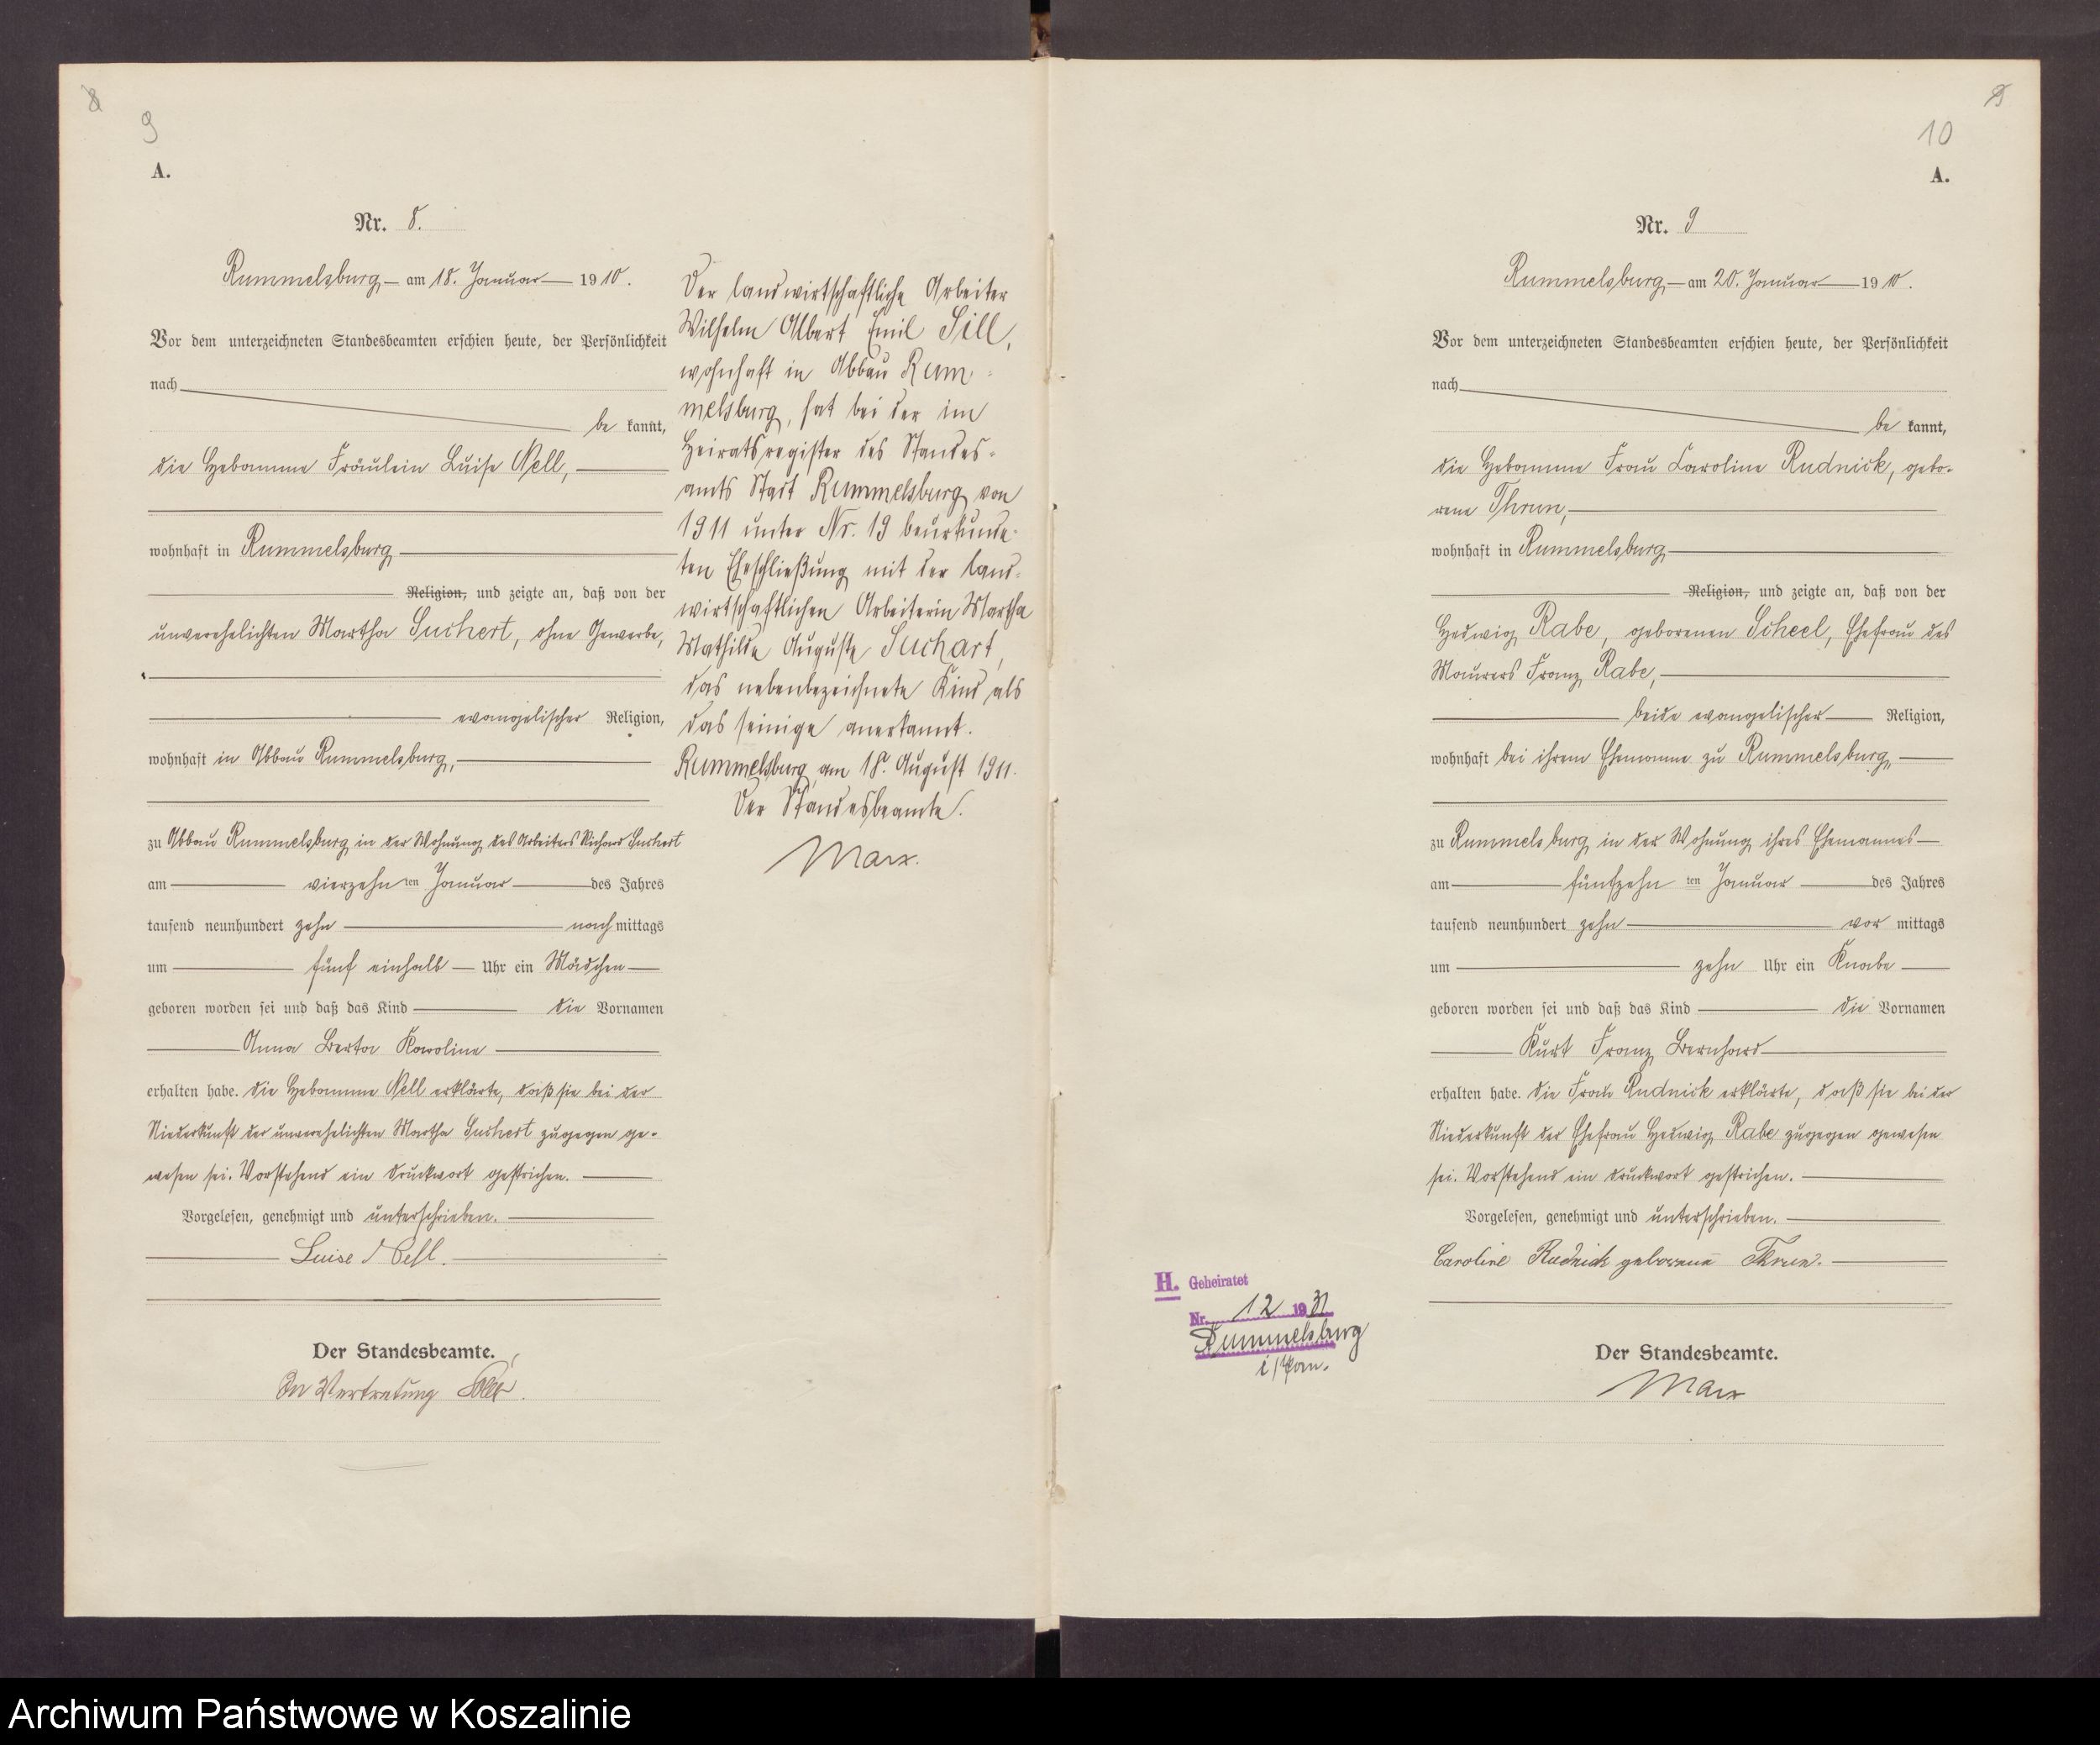 9
A.
Nr. 8.
Rummelsburg am 18. Januar 1910.
Vor dem unterzeichneten Standesbeamten erschien heute, der Persönlichkeit
nach
be kannt,
die Hebamme Fräulein Luise Nell,
wohnhaft in Rummelsburg
Religion, und zeigte an, daß von der
unverehelichten Martha Suchert, ohne Gewerbe,
evangelischer Religion,
wohnhaft in Abbau Rummelsburg,
zu Abbau Rummelsburg in der Wohnung des Arbeiters Richard Suchert
am vierzehn ten Januar des Jahres
tausend neunhundert zehn nach mittags
um fünf einhalb Uhr ein Mädchen
geboren worden sei und daß das Kind die Vornamen
Anna Berta Karoline
erhalten habe. Die Hebamme Nell erklärte, daß sie bei der
Niederkunft der unverehelichten Martha Suchert zugegen ge-
wesen sei. Vorstehend ein Druckwort gestrichen.
Vorgelesen, genehmigt und unterschrieben.
Luise Nell.
Der Standesbeamte.
In Vertretung
Der landwirtschaftliche Arbeiter
Wilhelm Albert Emil Sill,
wohnhaft in Abbau Rum-
melsburg, hat bei der im
Heiratsregister des Standes-
amts Stadt Rummelsburg von
1911 unter Nr. 19 beurkunde-
ten Eheschließung mit der land-
wirtschaftlichen Arbeiterin Martha
Mathilde Auguste Suchart,
das nebenbezeichnete Kind als
das seinige anerkannt.
Rummelsburg am 18. August 1911.
Der Standesbeamte.
Marx.
10
A.
Nr. 9
Rummelsburg am 20. Januar 1910.
Vor dem unterzeichneten Standesbeamten erschien heute, der Persönlichkeit
nach
be kannt,
die Hebamme Frau Caroline Rudnick, gebo-
rene Thrun,
wohnhaft in Rummelsburg
Religion, und zeigte an, daß von der
Hedwig Rabe, geborenen Scheel, Ehefrau des
Maurers Franz Rabe,
beide evangelischer Religion,
wohnhaft bei ihrem Ehemanne zu Rummelsburg,
zu Rummelsburg in der Wohnung ihres Ehemannes
am fünfzehn ten Januar des Jahres
tausend neunhundert zehn vor mittags
um zehn Uhr ein Knabe
geboren worden sei und daß das Kind die Vornamen
Kurt Franz Bernhard
erhalten habe. Die Frau Rudnick erklärte, daß sie bei der
Niederkunft der Ehefrau Hedwig Rabe zugegen gewesen
sei. Vorstehend ein Druckwort gestrichen.
Vorgelesen, genehmigt und unterschrieben.
Caroline Rudnick geborene Thrun.
Der Standesbeamte.
Marx
H. Geheiratet
Nr. 12 1931
Rummelsburg
i/Pom.
Archiwum Państwowe w Koszalinie